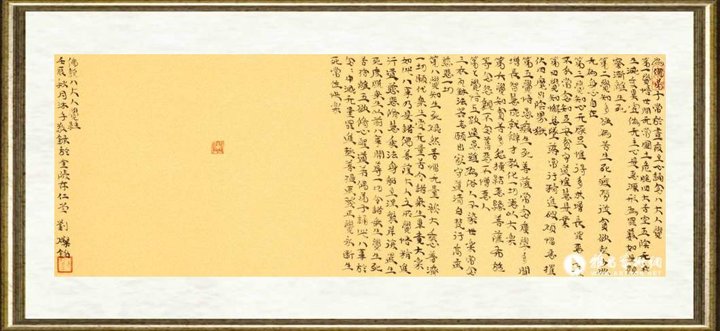 為佛弟子常於晝夜至心誦念八大人覺
第一覺悟世間無常國土危脆四大苦空五陰無我
生滅變異虛偽無主心是惡源形為罪藪如是觀
察漸離生死
第二覺知多欲為苦生死疲勞從貪欲起少欲
无為身心自在
第三覺知心无厭足惟得多求增長罪惡
不爾常念知足安貧守道唯慧是業
第四覺知懈怠墜落常行精進破煩惱惡摧
伏四魔出陰界獄
第五覺悟愚癡生死菩薩常念廣學多聞
增長智慧成就辯才教化一切悉以大樂
第六覺知貧苦多怨橫結惡緣菩薩布施
等念怨親不念舊惡不憎惡人
第七覺悟五欲過患雖為俗人不染世樂常念
三衣瓦鉢法器志願出家守道清白梵行高遠
慈悲一切
第八覺知生死熾然苦惱无量發大乘心普濟
一切願代眾生受无量苦令諸眾生畢竟大樂
如此八事乃是諸佛菩薩大人之所覺悟精進
行道慈悲修慧乘法身船至涅槃岸復還生
死度脫眾生以前八事開導一切令諸眾生覺生死
苦捨離五欲修心聖道若佛弟子誦此八事於
念中滅无量罪進趣菩提速登正覺永斷生
死常住快樂
佛說八大人覺經
壬辰秋月沐手敬錄於金陵存仁堂 劉燦銘
雅昌艺术网